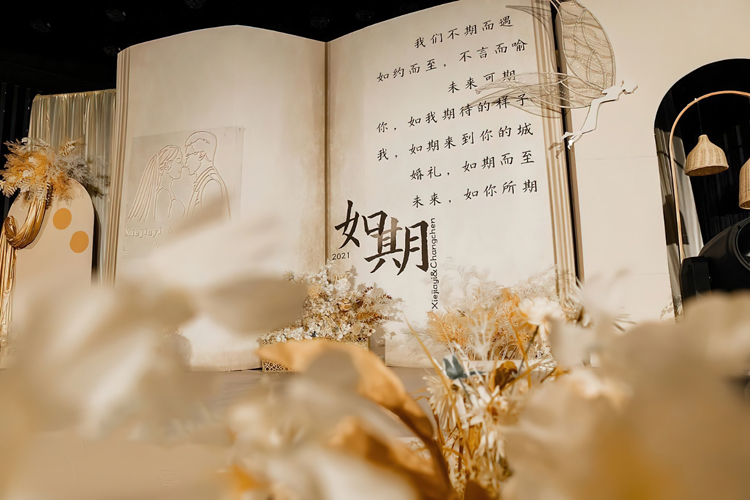 我们不期而遇
如约而至，不言而喻
未来可期
你，如我期待的样子
我，如期来到你的城
婚礼，如期而至
未来，如你所期
如期
2021
Xiejiayi&Changchen
Xiejiayi